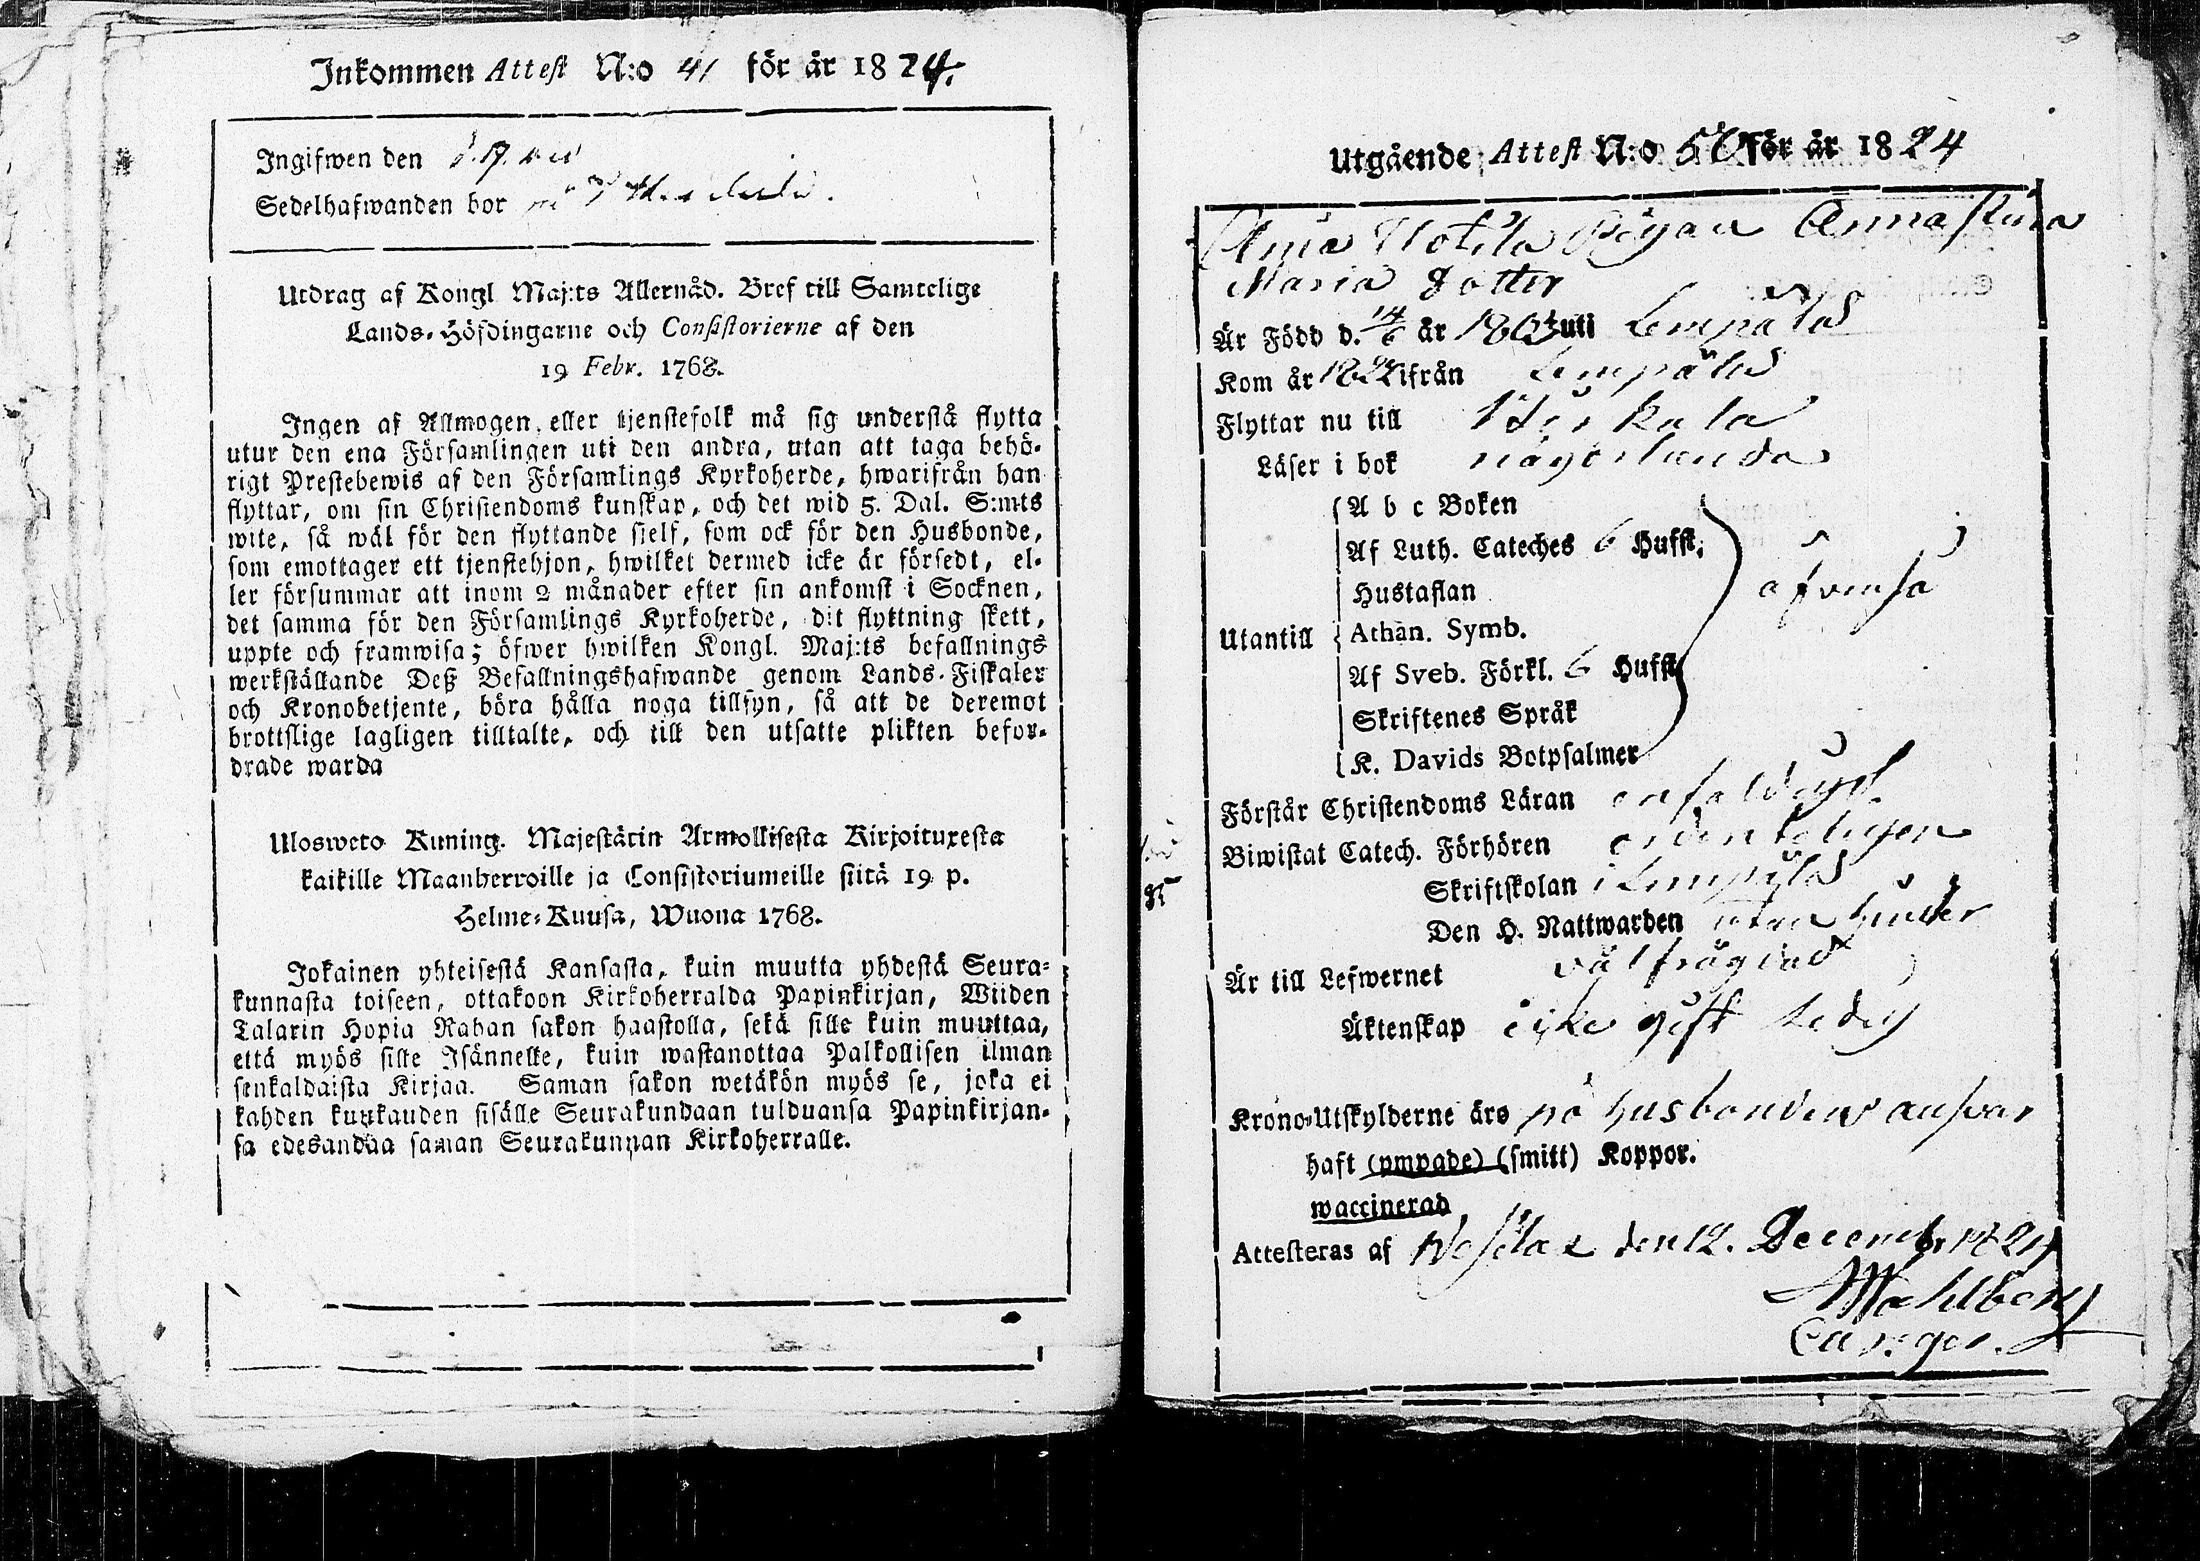 Inkommen Attest N:o 41 för år 1824.
Ingifwen den
Sedelhafwanden bor på
Utdrag af Kongl Maj:ts Allernåd. Bref till Samtelige
Lands-Höfdingarne och Consistorierne af den
19 Febr. 1768.
Ingen af Allmogen, eller tjenstefolk må sig understå flytta
utur den ena Församlingen uti den andra, utan att taga behö-
rigt Prestebewis af den Församlings Kyrkoherde, hwarifrån han
flyttar, om sin Christendoms kunskap, och det wid 5. Dal. S:mts
wite, så wäl för den flyttande sielf, som ock för den Husbonde,
som emottager ett tjenstehjon, hwilket dermed icke är försedt, el-
ler försummar att inom 2 månader efter sin ankomst i Socknen,
det samma för den Församlings Kyrkoherde, dit flyttning skett,
uppte och framwisa; öfwer hwilken Kongl. Maj:ts befallnings
werkställande Deß Befallningshafwande genom Lands-Fiskaler
och Kronobetjente, böra hålla noga tillsyn, så att de deremot
brottslige lagligen tilltalte, och till den utsatte plikten befor-
drade warda
Ulosweto Kuning. Majestätin Armollisesta Kirjoituxesta
kaikille Maanherroille ja Consistoriumeille siitä 19 p.
Helme-Kuusa, Wuona 1768.
Jokainen yhteisestä Kansasta, kuin muutta yhdestä Seura-
kunnasta toiseen, ottakoon Kirkoherralda Papinkirjan, Wiiden
Talarin Hopia Rahan sakon haastolla, sekä sille kuin muuttaa,
että myös sille Isännelle, kuin wastanottaa Palkollisen ilman
senkaldaista Kirjaa. Saman sakon wetäkön myös se, joka ei
kahden kuukauden sisälle Seurakundaan tulduansa Papinkirjan-
sa edesandaa saman Seurakunnan Kirkoherralle.
Utgående Attest N:o 50 för år 1824
Pigan Anna Stina
Maria Dotter
Är Född d. 14/6 år 1803 uti Lempälä
Kom år 1824 ifrån Lempälä
Flyttar nu till Birkala
Läser i bok någorlunda
A b c Boken
Af Luth. Cateches 6 Hufst.
Hustaflan äfvenså
Utantill Athan. Symb.
Af Sveb. Förkl. 6 Hufst
Skriftenes Språk
K. Davids Botpsalmer
Förstår Christendoms Läran enfaldigt
Biwistat Catech. Förhören ordenteligen
Skriftskolan i Lempälä
Den H. Nattwarden utan hinder
Är till Lefwernet välfrägdad
Äktenskap icke gift ledig
Krono-Utskylderne äro på husbondens ansvar
haft (ympade) (smitt) Koppor.
waccinerad
Attesteras af Wesilax den 12. Decemb. 1824
Wahlberg